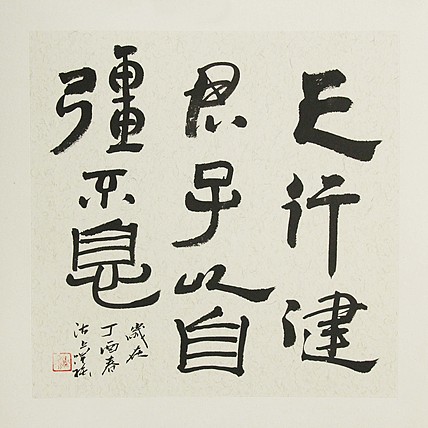 天行健
君子以自
彊不息
歲在
丁酉春